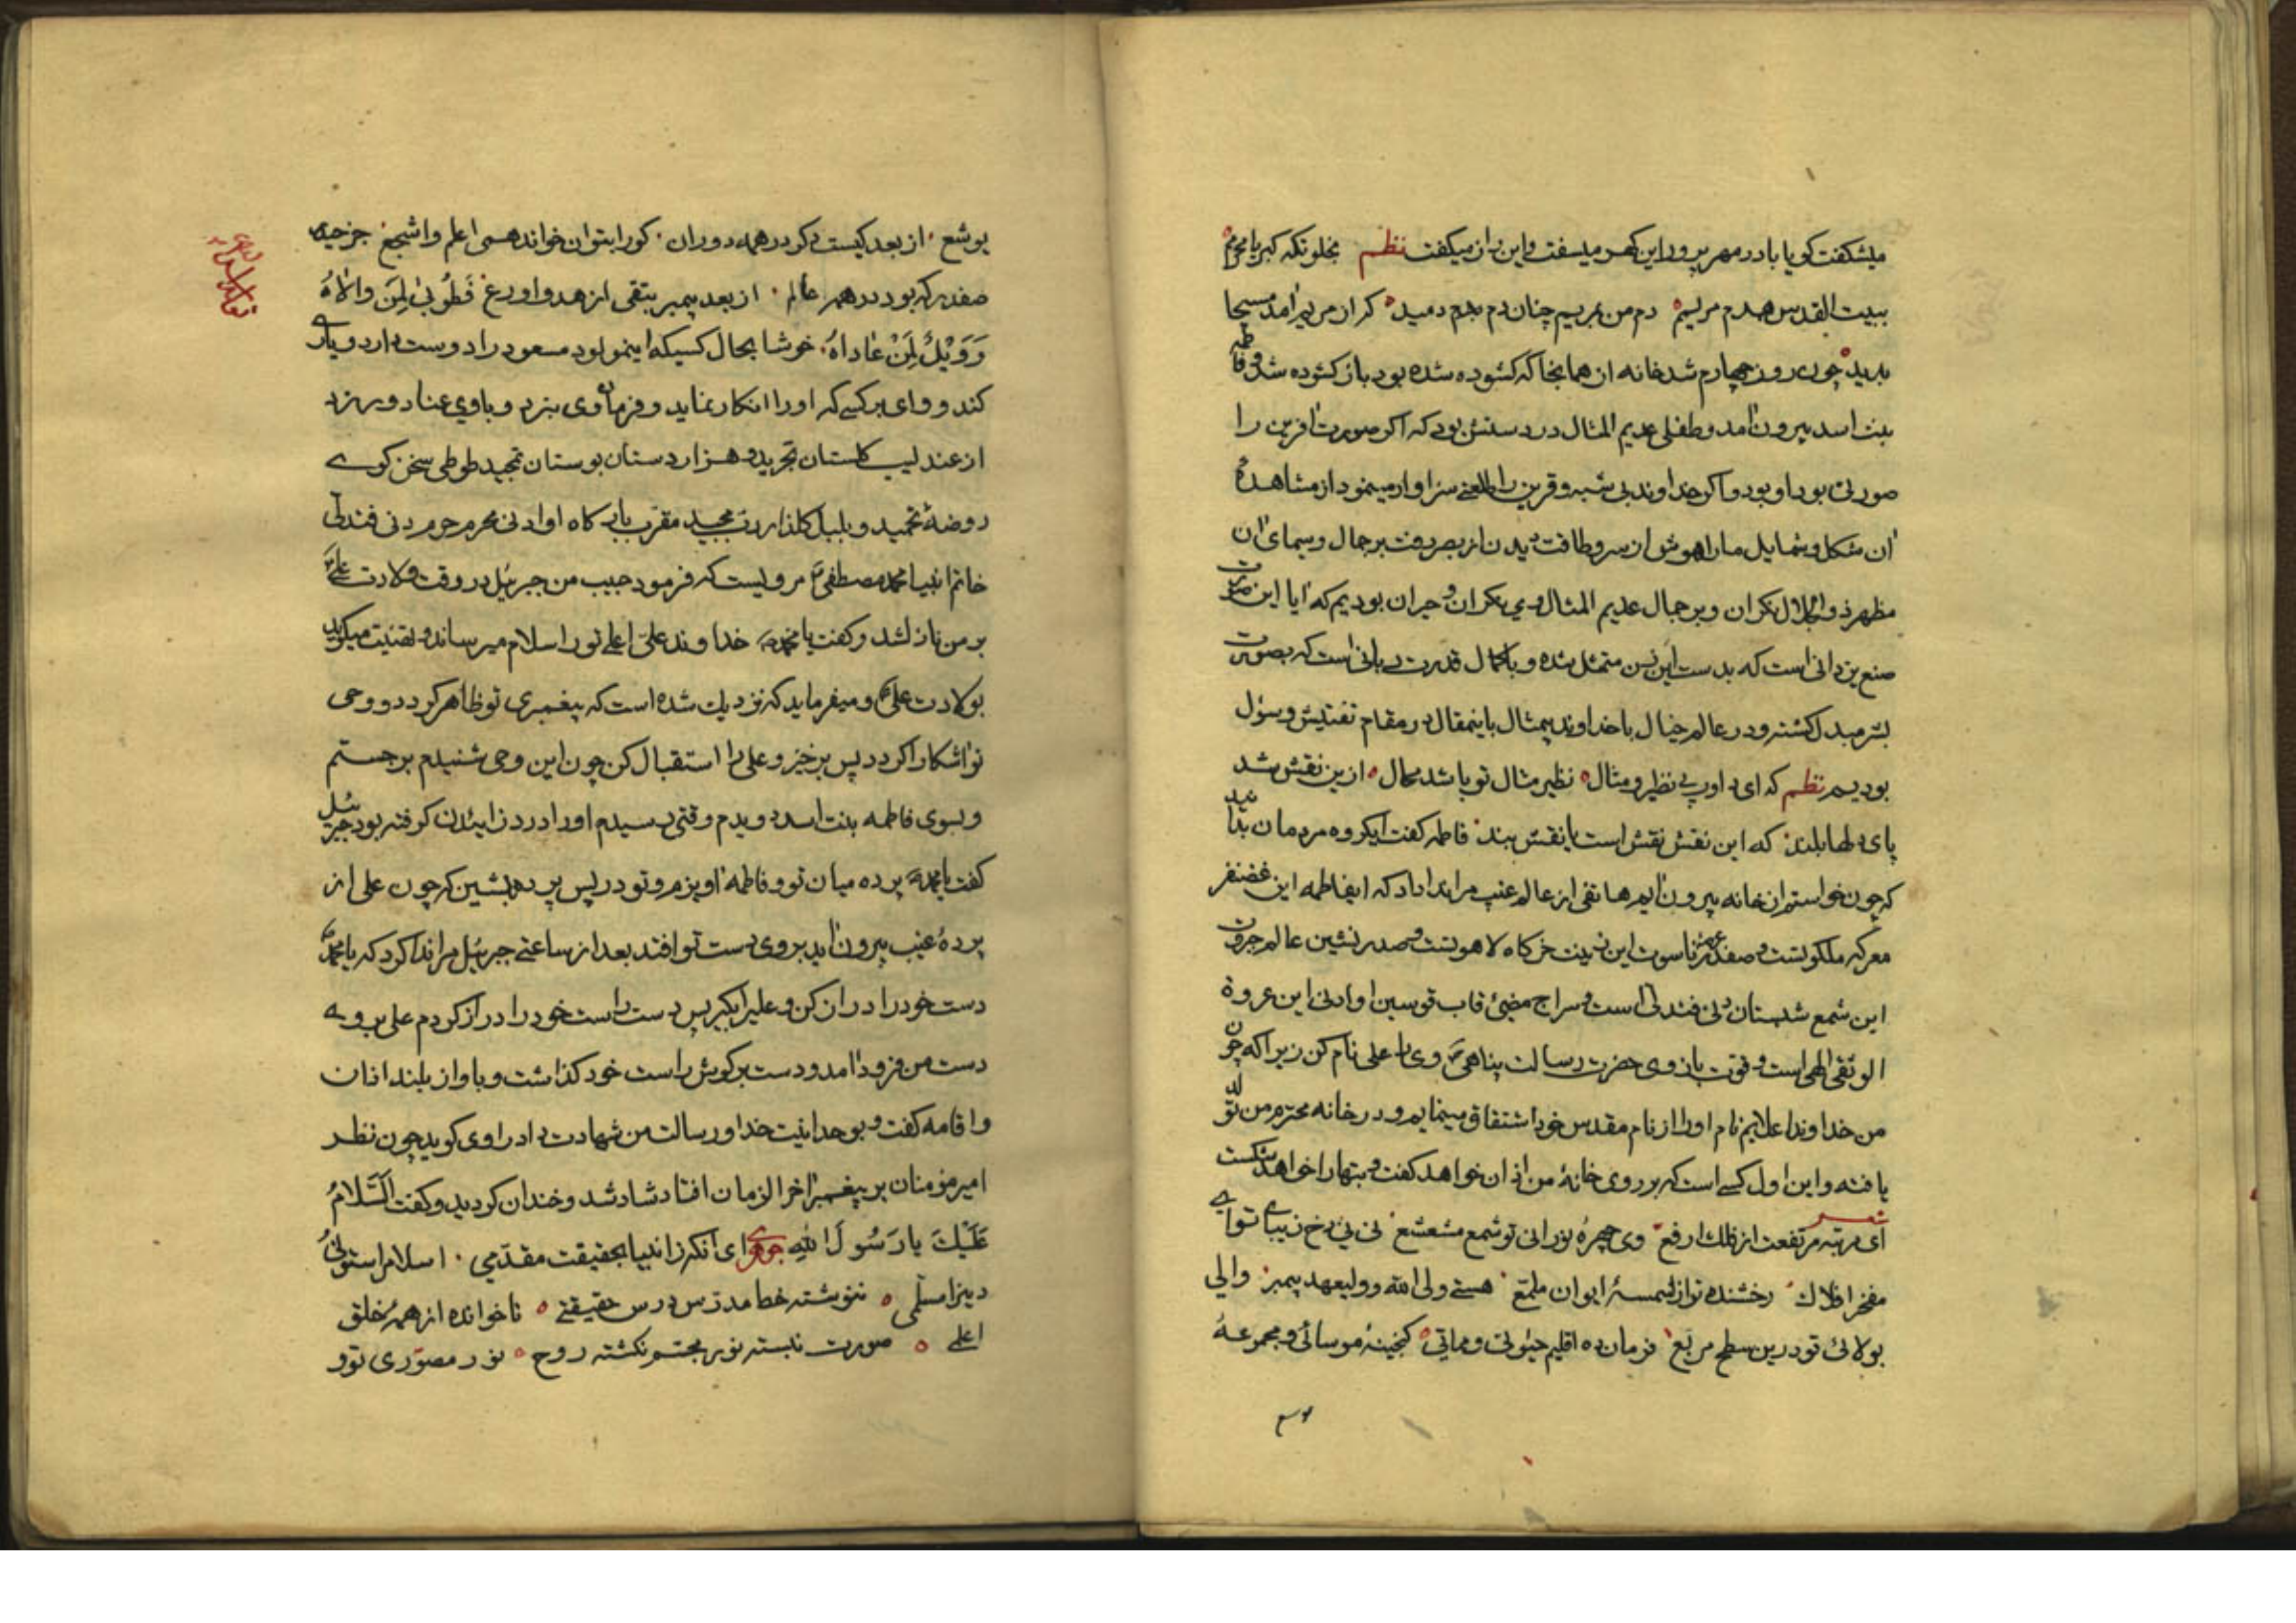 میشکفت کویا با در مهر پرور این کهر میسفت و این راز میکفت نظم بخلوتکه کبریا محرم
ببیت القدس همدم مریم دم من بمریم چنان دم بدم دمید کز از مریم آمد مسیحا
پدید چون روز چهارم شد خانه از همانجا که کشوده شده بود باز کشوده شد و فاطمه
بنت اسد بیرون آمد و طفلی عدیم المثال در دستش بود که اکر صورت آفرین را
صورتی بود او بود و اکر خداوند بی شبه و قرین را طلعتی سزاوار مینمود از مشاهدهٔ
آن شکل و شمایل ما را هوش از سر و طاقت دیدن از بصر رفت بر جمال و سیمای آن
مظهر ذو الجلال نکران و بر جمال عدیم المثال وی نکران و حیران بودیم که آیا این
صنع یزدانی است که بدست این زن متمثل شده و یا کمال قدرت ربانی است که بصورت
بشر مبدل کشته و در عالم خیال با خداوند بیمثال باینمقال در مقام تفتیش و سؤل
بودیم نظم که ای داور بی نظیر و مثال نظیر مثال تو باشد محال ازین نقش شد
پای دلها بلند که این نقش نقش است یا نقش بند فاطمه کفت ایکروه مردمان بدانید
که چون خواستم از خانه بیرون آیم هاتفی از عالم غیب مرا ندا داد که ایفاطمه این غضنفر
معرکه ملکوتست و صفدر عرصهٔ ناسوت این زینت خرکاه لاهوتست و صدر نشین عالم جبروت
این شمع شبستان دنی فتدلی است و سراج مضیئ قاب قوسین او ادنی این عروة
الوثقی الهی است و قوت بازوی حضرت رسالت پناهی وی را علی نام کن زیرا که چون
من خداوند اعلایم نام او را از نام مقدس خود اشتقاق مینمایم و در خانه محترم من تولد
یافته و این اول کسی است که بر روی خانهٔ من اذان خواهد کفت و بتها را خواهد شکست
شعر
ای مرتبه مرتفعت از فلک ارفع وی چهرهٔ نورانی تو شمع مشعشع نی نی رخ زیبای تو ای
مفخر افلاک رخشنده تر از شمسهٔ ایوان ملمع هستی ولی الله و ولیعهد پیمبر والی
بولائ تو درین سطح مربع فرمان ده اقلیم حیوتی و مماتی کنجینهٔ موسائی و مجموعهٔ
یوشع از بعد کیست دکر در همه دوران کو را بتوان خواند همی اعلم و اشجع جز حیدر
صفدر که بود در همه عالم از بعد پیمبر بتقی ازهد و اورع فَطُوبیٰ لِمَن والاهُ
وَوَیْلٌ لِمَنْ عاداهُ خوشا بحال کسیکه اینمولود مسعود را دوست دارد و یاری
کند و وای بر کسی که او را انکار نماید و فرمان وی نبرد و با وی عناد ورزد
از عندلیب کلستان تجرید و هزار دستان بوستان تمجید طوطی سخن کوی
روضهٔ تحمید و بلبل کلذار رب مجید مقرب بارکاه او ادنی محرم حرم دنی فتدلی
خاتم انبیا محمد مصطفی مرویست که فرمود حبیب من جبرئیل در وقت ولادت علی
بر من نازلشد و کفت یا محمد خداوند علی اعلی تو را سلام میرساند و تهنیت میکوید
بولادت علی و میفرماید که نزدیک شده است که پیغمبری تو ظاهر کردد و وحی
تو آشکارا کردد پس برخیز و علی را استقبال کن چون این وحی شنیدم برجستم
و بسوی فاطمه بنت اسد دویدم وقتی رسیدم او را درد زائیدن کرفته بود جبرئیل
کفت یا محمد پرده میان تو و فاطمه آویزم و تو در پس پرده بنشین که چون علی از
پردهٔ غیب بیرون آید بر روی دست تو افتد بعد از ساعتی جبرئیل مرا ندا کرد که یا محمد
دست خود را دراز کن و علی را بکیر پس دست راست خود را دراز کردم علی بروی
دست من فرود آمد و دست بر کوش راست خود کذاشت و باواز بلند اذان
و اقامه کفت و بوحدانیت خدا و رسالت من شهادت داد راوی کوید چون نظر
امیر مؤمنان بر پیغمبر آخر الزمان افتاد شاد شد و خندان کردید و کفت السَّلامُ
عَلَیْکَ یا رَسُولَ اللهِ جوهری ای آنکه ز انبیا بحقیقت مقدمی اسلام را ستونی
دین را مسلمی ننوشته خط مدرس درس حقیقتی ناخوانده از همه خلق
اعلمی صورت نبسته نور مجسم نکشته روح نور مصوری تو و